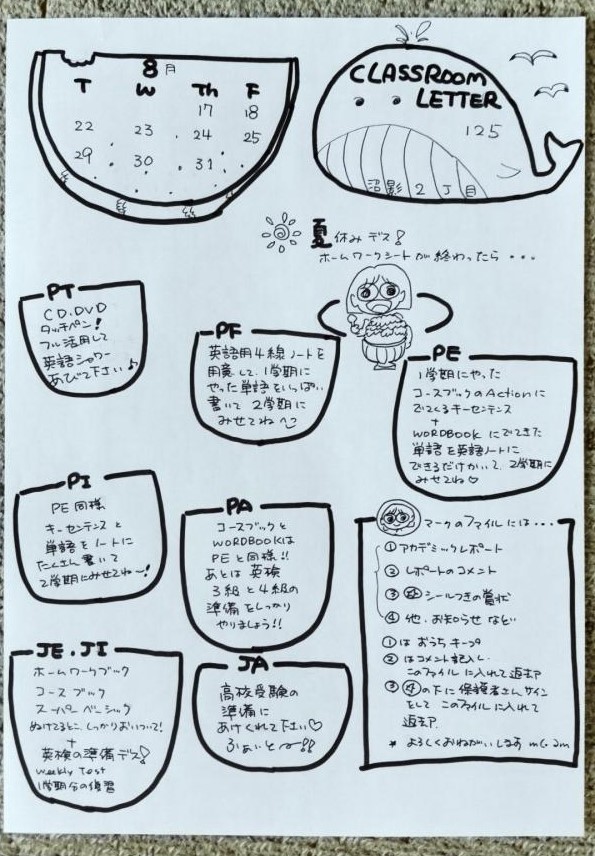 8月
T W Th F
17 18
22 23 24 25
29 30 31
CLASSROOM
LETTER
125
沼影2丁目
夏休みデス!
ホームワークシートが終わったら...
PT
CD.DVD
タッチペン!
フル活用して
英語シャワー
あびて下さい♪
PF
英語用4線ノートを
用意して、1学期に
やった単語をいっぱい
書いて2学期に
みせてね〜
PE
1学期にやった
コースブックのActionに
でてくるキーセンテンス
+
WORDBookにでてきた
単語を英語ノートに
できるだけかいて、2学期に
みせてね♡
PI
PE同様
キーセンテンスと
単語をノートに
たくさん書いて
2学期にみせてね〜!
PA
コースブックと
WORDBOOKは
PEと同様!!
あとは英検
3級と4級の
準備をしっかり
やりましょう!!
マークのファイルには...
①アカデミックレポート
②レポートのコメント
③シールつきの賞状
④他.お知らせなど
①はおうちキープ
②はコメント記入し.
このファイルに入れて返却
③④の下に保護者さんサイン
をしてこのファイルに入れて
返却
*よろしくおねがいします m(_)m
JE.JI
ホームワークブック
コースブック
スーパーベーシック
ぬけてるとこ、しっかりおいついて!
+
英検の準備デス!
weekly Test
1学期分の復習
JA
高校受験の
準備に
あけくれて下さい♡
ふぁいと〜!!